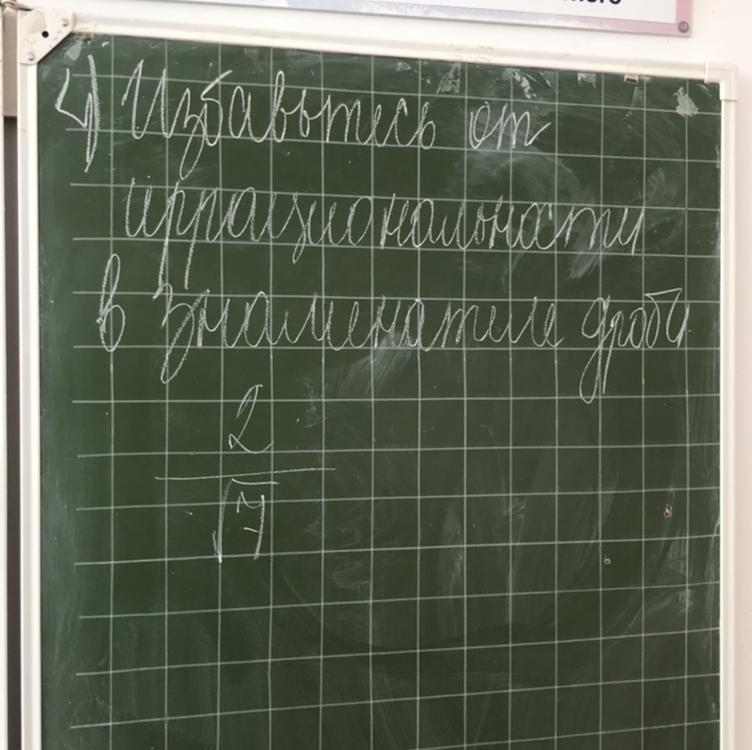 4) Избавьтесь от
иррациональности
в знаменателе дроби
2
√7